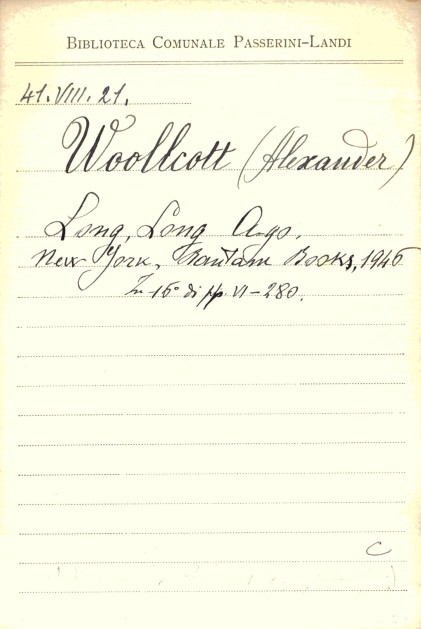 BIBLIOTECA COMUNALE PASSERINI-LANDI
41.VIII.21.
Woollcott (Alexander)
Long, Long Ago.
New York, Bantam Books, 1946
In-16° di pp. VI-280.
C